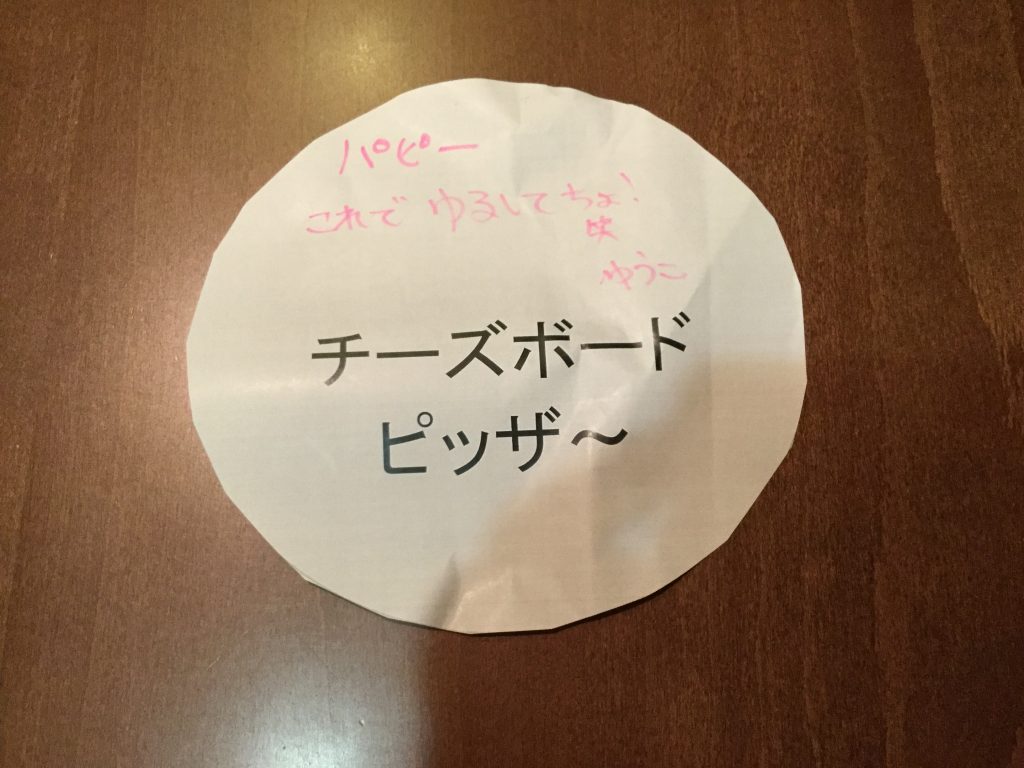 パピー
これで ゆるしてちょ!
ゆうこ
チーズボード
ピッザ～